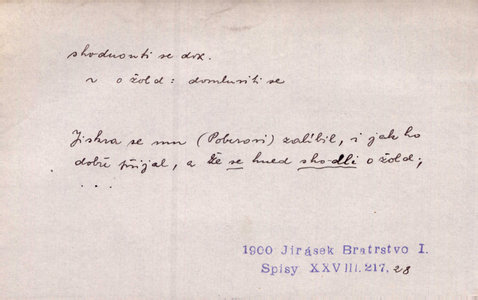 shodnouti se dok.
~ o žold: domluviti se
Jiskra se mu (Poberovi) zalíbil, i jak ho
dobře přijal, a že se hned shodli o žold;
...
1900 Jirásek Bratrstvo I.
Spisy XXVIII. 217, 28